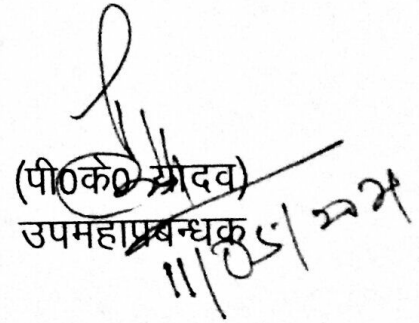 (पी0के0 यादव)
उपमहाप्रबन्धक
11/05/2021